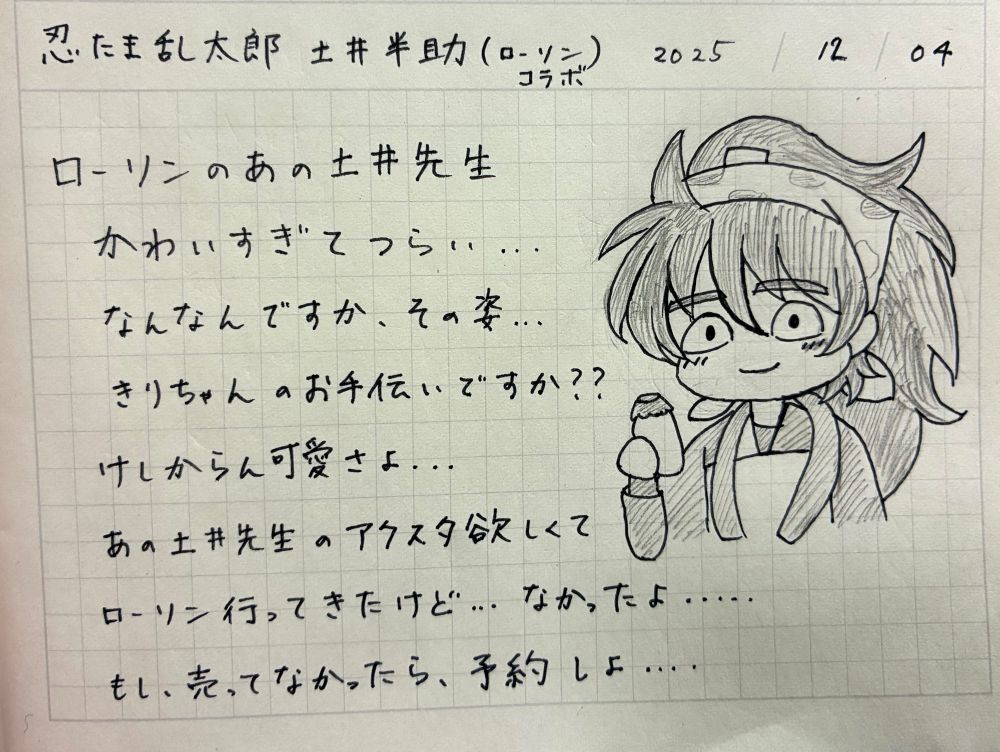 忍たま乱太郎 土井半助(ローソンコラボ) 2025 / 12 / 04
ローソンのあの土井先生
かわいすぎてつらい...
なんなんですか、その姿...
きりちゃんのお手伝いですか??
けしからん可愛さよ...
あの土井先生のアクスタ欲しくて
ローソン行ってきたけど... なかったよ.....
もし、売ってなかったら、予約しよ....